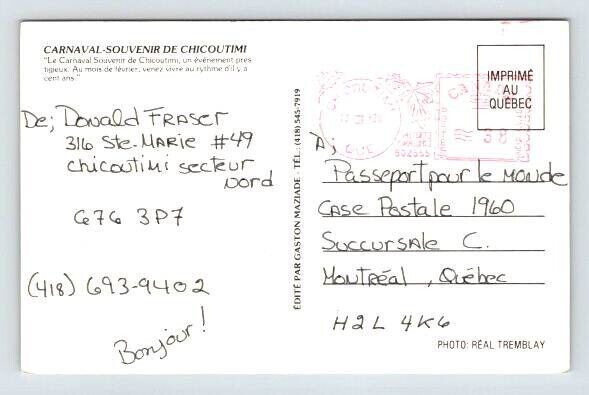 CARNAVAL-SOUVENIR DE CHICOUTIMI
"Le Carnaval Souvenir de Chicoutimi, un événement pres
tigieux. Au mois de février, venez vivre au rythme d'il y a
cent ans."
De; Donald FRASER
316 Ste-MARIE #49
Chicoutimi secteur
Nord
G7G 3P7
(418) 693-9402
Bonjour!
ÉDITÉ PAR GASTON MAZIADE - TÉL.: (418) 545-7919
IMPRIMÉ
AU
QUÉBEC
QUE
602555
38
A;
Passeport pour le MONDE
CASE Postale 1960
SUCCURSALE C.
Montréal, Québec
H2L 4K6
PHOTO: RÉAL TREMBLAY